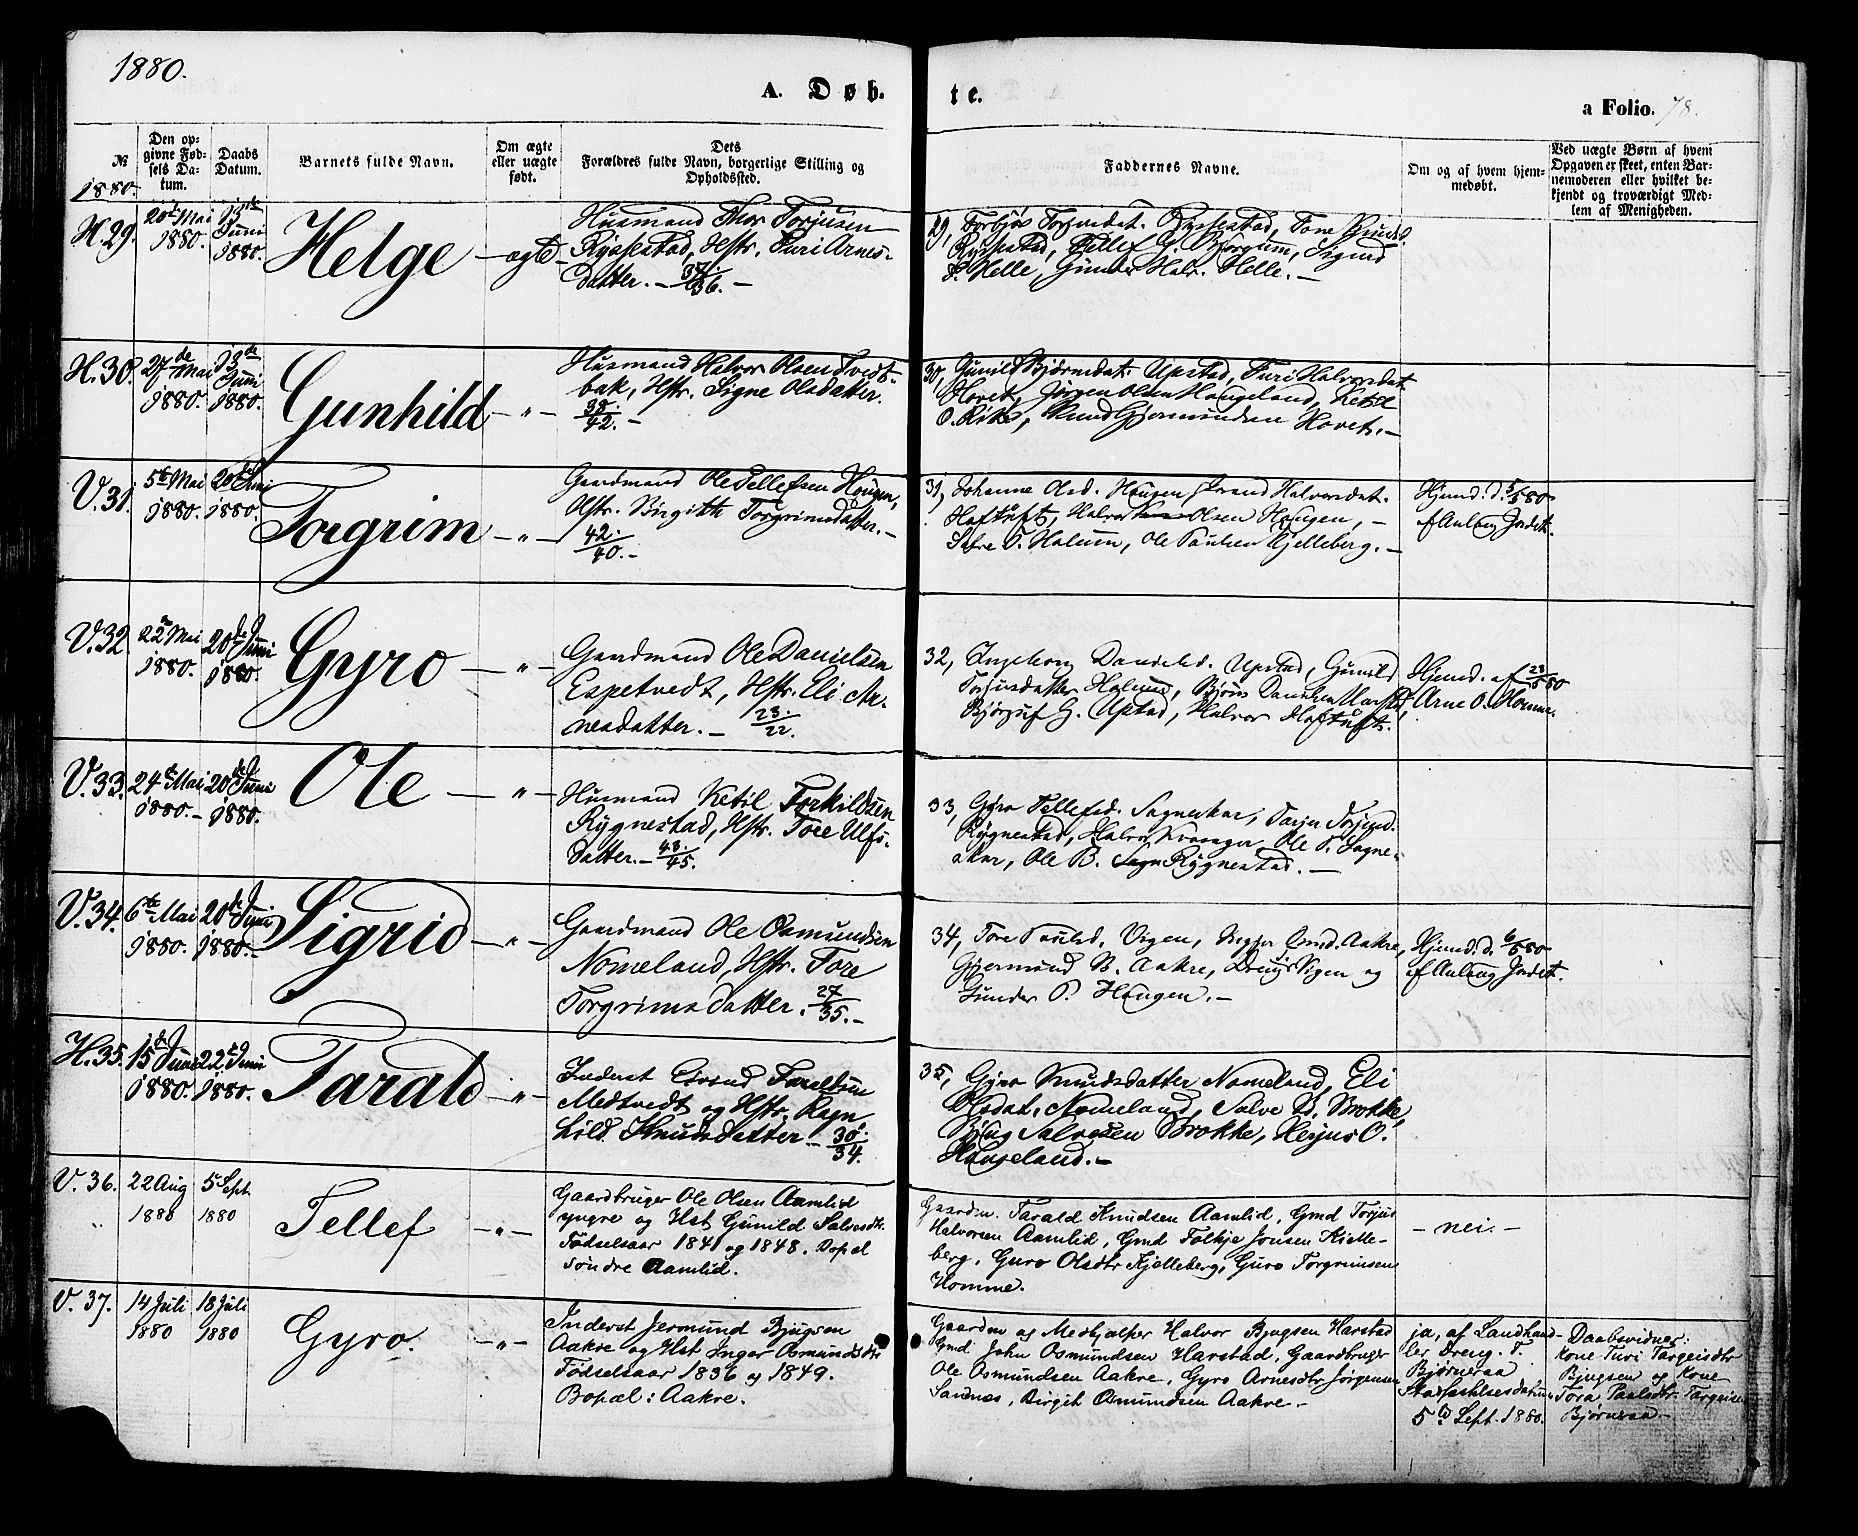 1880.
A. Døbte.
a Folio. 78.
№
1880.
Den opgivne Fødsels Datum.
Daabs Datum.
Barnets fulde Navn.
Om ægte eller uægte født.
Dets Forældres fulde Navn, borgerlige Stilling og Opholdssted.
Faddernes Navne.
Om og af hvem hjemmedøbt.
Ved uægte Børn af hvem Opgaven er skeet, enten Barnemoderen eller hvilket bekjendt og troværdigt Medlem af Menigheden.
H. 29.
20de Mai 1880.
13de Juni 1880.
Helge
ægte
Husmand Thor Torjusen
Rysstad, Hstr. Turi Arnes-
datter.
29,
Rysstad, Tone
Rysstad, Tellef G. Bjorgum, Sigrid
Helle, Gunder Halv. Helle. —
H. 30.
27de Mai 1880.
13de Juni 1880.
Gunhild — „ —
Husmand Halvor Olsen Tvedt-
bak, Hstr. Signe Olsdatter.
30, Gunild Bjørnsdat. Upstad, Turi Halvorsdat.
Hovet, Jørgen Olsen Haugeland, Ketil
O. Rike, Knud Gjermundsen Hovet. —
V. 31.
5te Mai 1880.
20de Juni 1880.
Torgrim — „ —
Gaardmand Ole Tellefsen Hougen,
Hstr. Birgith Torgrimsdatter. —
42./40. —
31, Johanne Olsd. Hougen, Halvorsdat.
Hoftuft, Halvor Olsen Hougen, —
Ole Paulsen Kjelleberg. —
Hjemd. d. 5/5 80
af Anlaug Jordet.
V. 32.
22de Mai 1880.
20de Juni 1880.
Gyro — „ —
Gaardmand Ole Danielsen
Espetvedt, Hstr. Eli Ar-
nesdatter. — 23./22.
32, Ingeborg Danielsd. Upstad, Gunild
Torjusdatter Halum, Bjørn Danielsen Harstad,
Bjørguf G. Upstad, Halvor Hoftuft.
Hjemd. af 23/5 80
Arne O. Homme.
V. 33.
24de Mai 1880. —
20de Juni 1880.
Ole — „ —
Husmand Ketil Torkildsen
Rygnestad, Hstr. Tore Ulfs-
datter. — 43./45.
33, Gyro Tellefsd. Sagneskar, Tarjer Torjusd.
Rygnestad, Halvor Ole T. Sagne-
skar, Ole B. Rygnestad. —
V. 34.
6te Mai 1880.
20de Juni 1880. —
Sigrid — „ —
Gaardmand Ole Osmundsen
Nomeland, Hstr. Tore
Torgrimsdatter. 27/35. —
34, Tore Paulsd. Vigen, Osmd. Aakre,
Gjermund B. Aakre, Dreng Vigen og
Gunder P. Hougen. —
Hjemd. d. 6/5 80
af Anlaug Jordet.
H. 35.
15de Juni 1880.
22de Juni 1880.
Tarald — „ —
Inderst Eivind Taraldsen
Medtvedt og Hstr. Ragn-
hild Knudsdatter — 30./34.
35, Gyro Knudsdatter Nomeland, Eli
Olsdat. Nomeland, Salve D. Brokke,
Bjug Salvesen Brokke, O.
Haugeland. —
V. 36.
22 Aug 1880
5 Sept 1880
Tellef — „ —
Gaardbruger Ole Olsen Aamlid
yngre og Hst Gunild Salvesdtr.
Fødselsaar 1841 og 1848. Bopæl
Søndre Aamlid.
Gaardm. Tarald Knudsen Aamlid, Gmd Torjus
Halvorsen Aamlid, Gmd Folkje Jonsen Kjelle-
berg. Guro Olsdtr Kjelleberg, Guro Torgrimsen
Homme.
— nei. —
V. 37.
14 Juli 1880
18 Juli 1880
Gyro. — „ —
Inderst Jermund Bjugsen
Aakre og Hst Inger Osmundsdtr
Fødselsaar 1836 og 1849.
Bopæl: Aakre.
Gaardm og Medhjælper Halvor Bjugsen Harstad
Gmd John Osmundsen Harstad, Gaardbruger
Ole Osmundsen Aakre, Gyro Arnesdtr Jørgensen
Sandnes, Birgit Osmundsen Aakre —
ja, af Landhand-
ler Dreng. T.
Bjørneraa
Stadfæstelsesdatum
5te Sept. 1880.
Daabsvidner:
Kone Turi Targeisdtr
Bjugsen og Kone
Tora Paalsdtr Targeisen
Bjørneraa. —